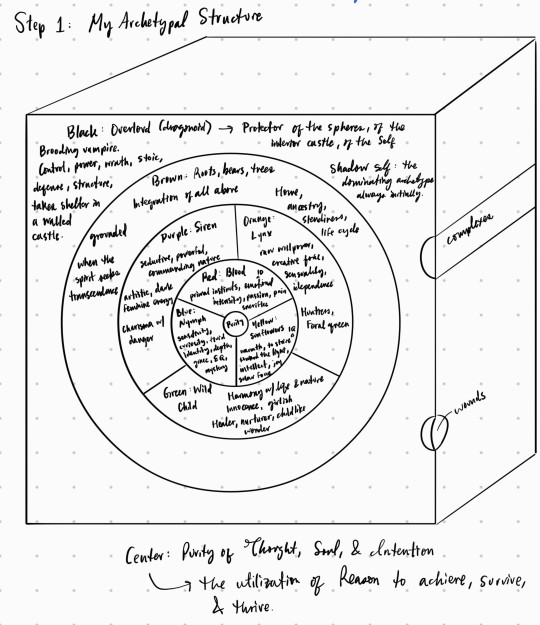 Step 1: My Archetypal Structure
Black: Overlord (dragonoid) → Protector of the spheres, of the
interior castle, of the Self
Brooding vampire.
Control, power, wrath, stoic,
defense, structure,
takes shelter in
a walled
castle.
Shadow self: the
dominating archetype
always initially.
Brown: Roots, bears, trees
Integration of all above
Home,
ancestry,
steadiness,
life cycle
grounded
when the
spirit seeks
transcendence
Hunters,
Forest green
Purple: Siren
seductive, powerful,
commanding nature
artistic, dark
feminine energy
charisma w/
danger
Orange:
Lynx
raw willpower,
creative force,
sensuality,
independence
Green: Wild
Child
Harmony w/ life & nature
Innocence, girlish
Healer, nurturer, childlike
wonder
Red: Blood
primal instincts, emotional
intensity, passion, pain
sacrifice
Blue:
Nymph
sensitivity,
curiosity, fluid
identity, depth,
grace, EQ,
mystery
Yellow:
Sunflowers
warmth, to share
around the light,
intellect, joy
solar force
Purity
complexes
wounds
Center: Purity of Thought, Soul, & Intention
↳ the utilization of Reason to achieve, survive,
& thrive.